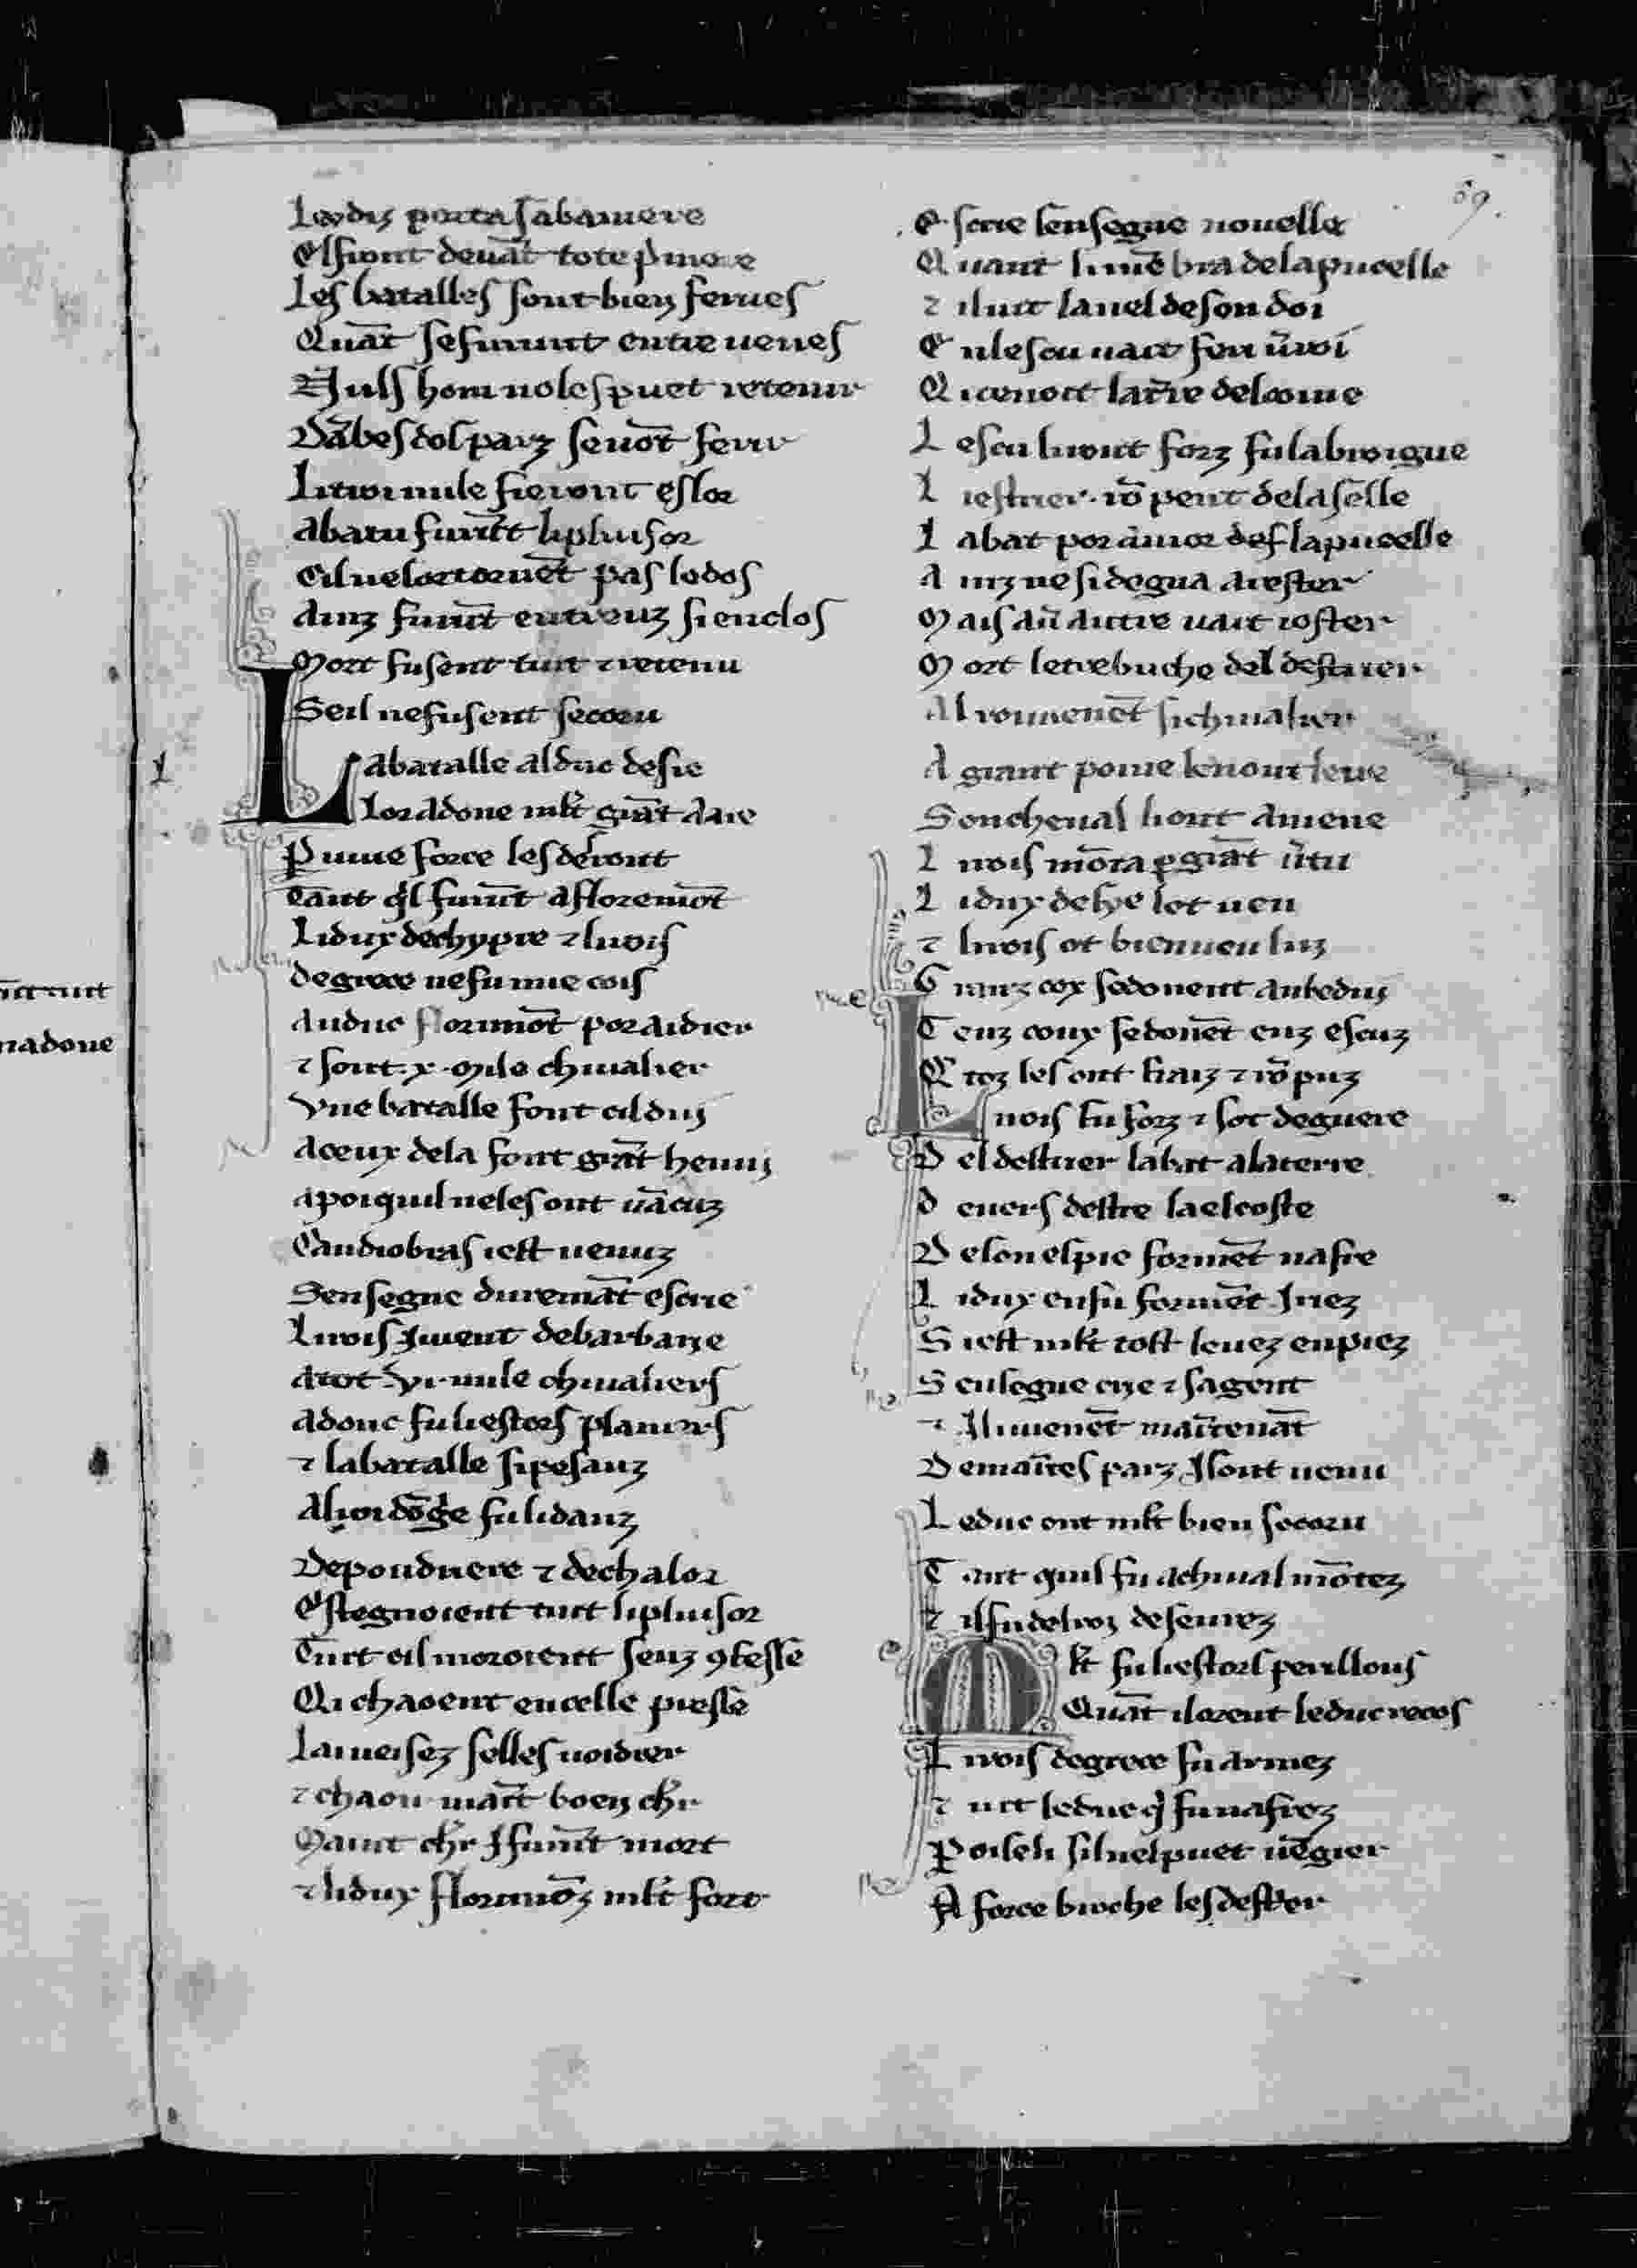 69.
Lesdiz porta sa baniere
El front deuāt tote pmere
Les batalles sont bien ferues
Quāt se furunt entre uenes
Nuls hom no les puet retenir
Dābes dos parz seuōt ferir
Li troi mile fieront estor
abatu furēt li pluisor
Cil ne lor tornēt pas lo dos
ainz furūt entreuz si enclos
Mort fusent tuit ⁊ retenu
Se il ne fusent secoru
La batalle al duc desie
Lor a done mlt̄ grāt aaie
P uiue force les deront
Tāut ql furūt a floremōt
Li dux de chypre ⁊ li rois
de grece ne fu mie cois
au duc florimōt por aidier
⁊ sont .x. mile cheualier
Vne batalle font cil dui
a ceux de la font grāt henui
a poi quil ne les ont uācuz
Candiobras i est uenuz
Sensegne duremāt escrie
Li rois i uient de barbarie
a tot .vi. mile chiualiers
adonc fu li estors planiers
⁊ la batalle si pesanz
al
fu li danz
De poudriere ⁊ de chalor
Estegnoient tuit li pluisor
Tuit cil moroient senz 9fesse
Qi chaoent en celle presse
La ueisez selles uoidier
⁊ chaou māt boen chr
Maint chr i furūt mort
⁊ li dux florimōz mlt̄ fort
Escrie sensegne nouelle
Quant li mēbra de la pucelle
⁊ il uit lanel de son doi
En lescu uait ferir ū roi
Qi tenoit la tr̄re del coine
Lescu li ront forz fu la broigne
Li estrier rōpent de la selle
Labat por amor des la pucelle
Ainz ne si degna arester
Mais aū autre uait ioster
Mort le trebuche del destrier
Al roi uienēt si chiualier
A grant poine lenont leue
Son cheual li ont amene
Li rois mōta p grāt ūtu
Li dux de
lot ueu
⁊ li rois ot bien ueu lui
Granz cox se donent anbedui
Tenz coux se donēt enz escuz
Etoz les ont fraiz ⁊ rōpuz
Li rois fu forz ⁊ sot de guere
Del destrier labat a la terre
Deuers destre la el coste
De son espie formēt nafre
Li dux en fu formēt iriez
Si est mlt̄ tost leuez en piez
Sensegne crie ⁊ sa gent
⁊ il i uienēt maītenāt
De maītes parz i sont uenu
Le duc ont mlt̄ bien secoru
Tant quil fu a chiual mōtez
⁊ il fu del roi deseurez
Mlt̄ fu li estors perillous
Quāt il orent le duc recos
Li rois de grece fu armez
⁊ uit le duc q fu nafrez
Poise li sil nel puet uēgier
A force broche les destrier